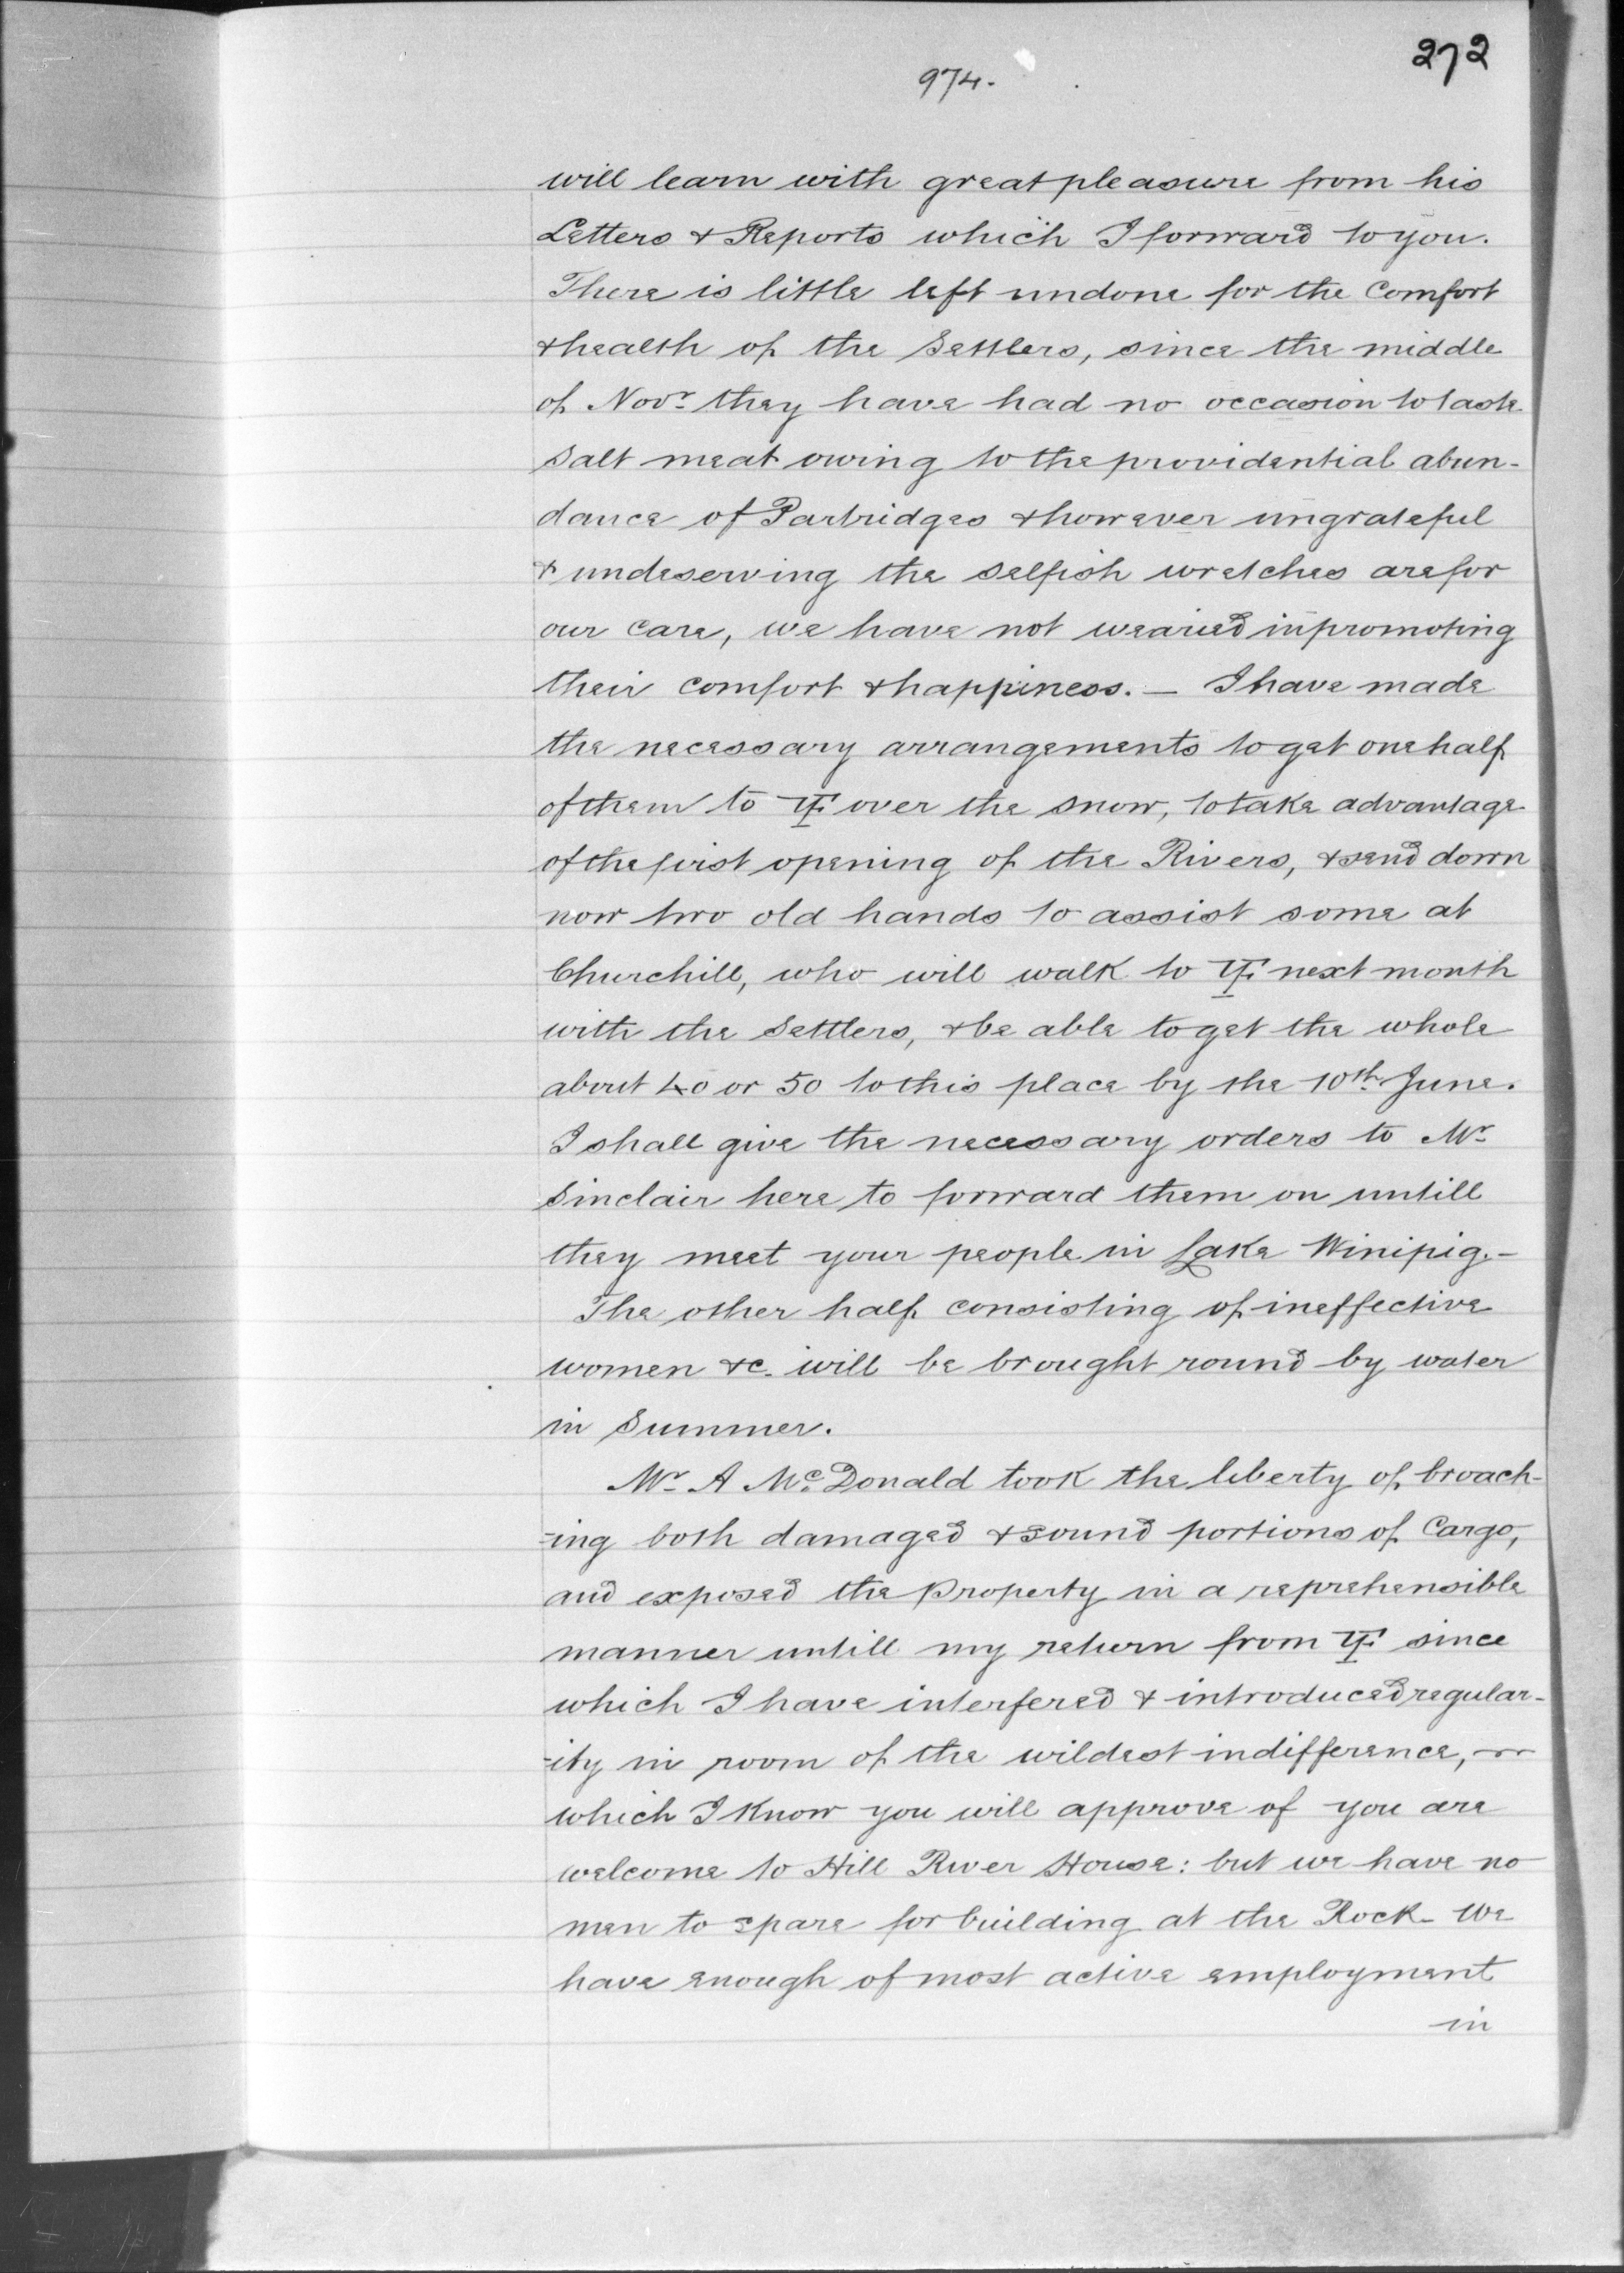 272
974.
will learn with great pleasure from his
Letters & Reports which I forward to you.
There is little left undone for the Comfort
& health of the Settlers, since the middle
of Novr. they have had no occasion to taste
salt meat owing to the providential abun-
dance of Partridges & however ungrateful
& undeserving the selfish wretches are for
our care, we have not wearied in promoting
their comfort & happiness. — I have made
the necessary arrangements to get one half
of them to YF. over the snow, to take advantage
of the first opening of the Rivers, & send down
now two old hands to assist some at
Churchill, who will walk to YF. next month
with the Settlers, & be able to get the whole
about 40 or 50 to this place by the 10th. June.
I shall give the necessary orders to Mr.
Sinclair here to forward them on untill
they meet your people in Lake Winipig. —
The other half consisting of ineffective
women &c. will be brought round by water
in Summer.
Mr. A McDonald took the liberty of broach-
-ing both damaged & sound portions of Cargo,
and exposed the Property in a reprehensible
manner untill my return from YF. since
which I have interfered & introduced regular-
-ity in room of the wildest indifference, —
which I know you will approve of you are
welcome to Hill River House: but we have no
men to spare for building at the Rock - We
have enough of most active employment
in